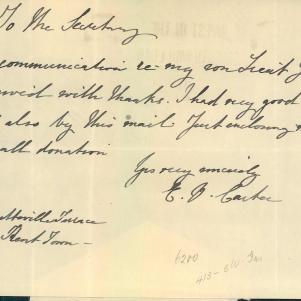 To the Secretary
communication re my son Lieut J
with thanks. I had very good
also by this mail Just enclosing
all donation
Yrs very sincerely
E. V. Carter
Terrace
Kent Town -
6280